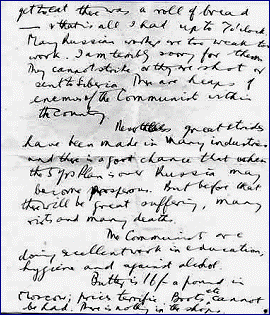 get to eat there was a roll of bread
– & that is all I had up to 7 o'clock.
Many Russian workers are too weak to
work. I am terribly sorry for them.
They cannot strike or they are shot or
sent to Siberia. There are heaps of
enemies of the Communist within
the Country.
Nevertheless great strides
have been made in many industries
and there is a good chance that when
the 5 yrs Plan is over Russia may
become prosperous. But before that
there will be great suffering, many
riots and many deaths.
The Communists are
doing excellent work in education,
hygiene and against alcohol.
Butter is 16/- a pound in
Moscow; prices terrific. Boots etc cannot
be had. There is nothing in the shops.